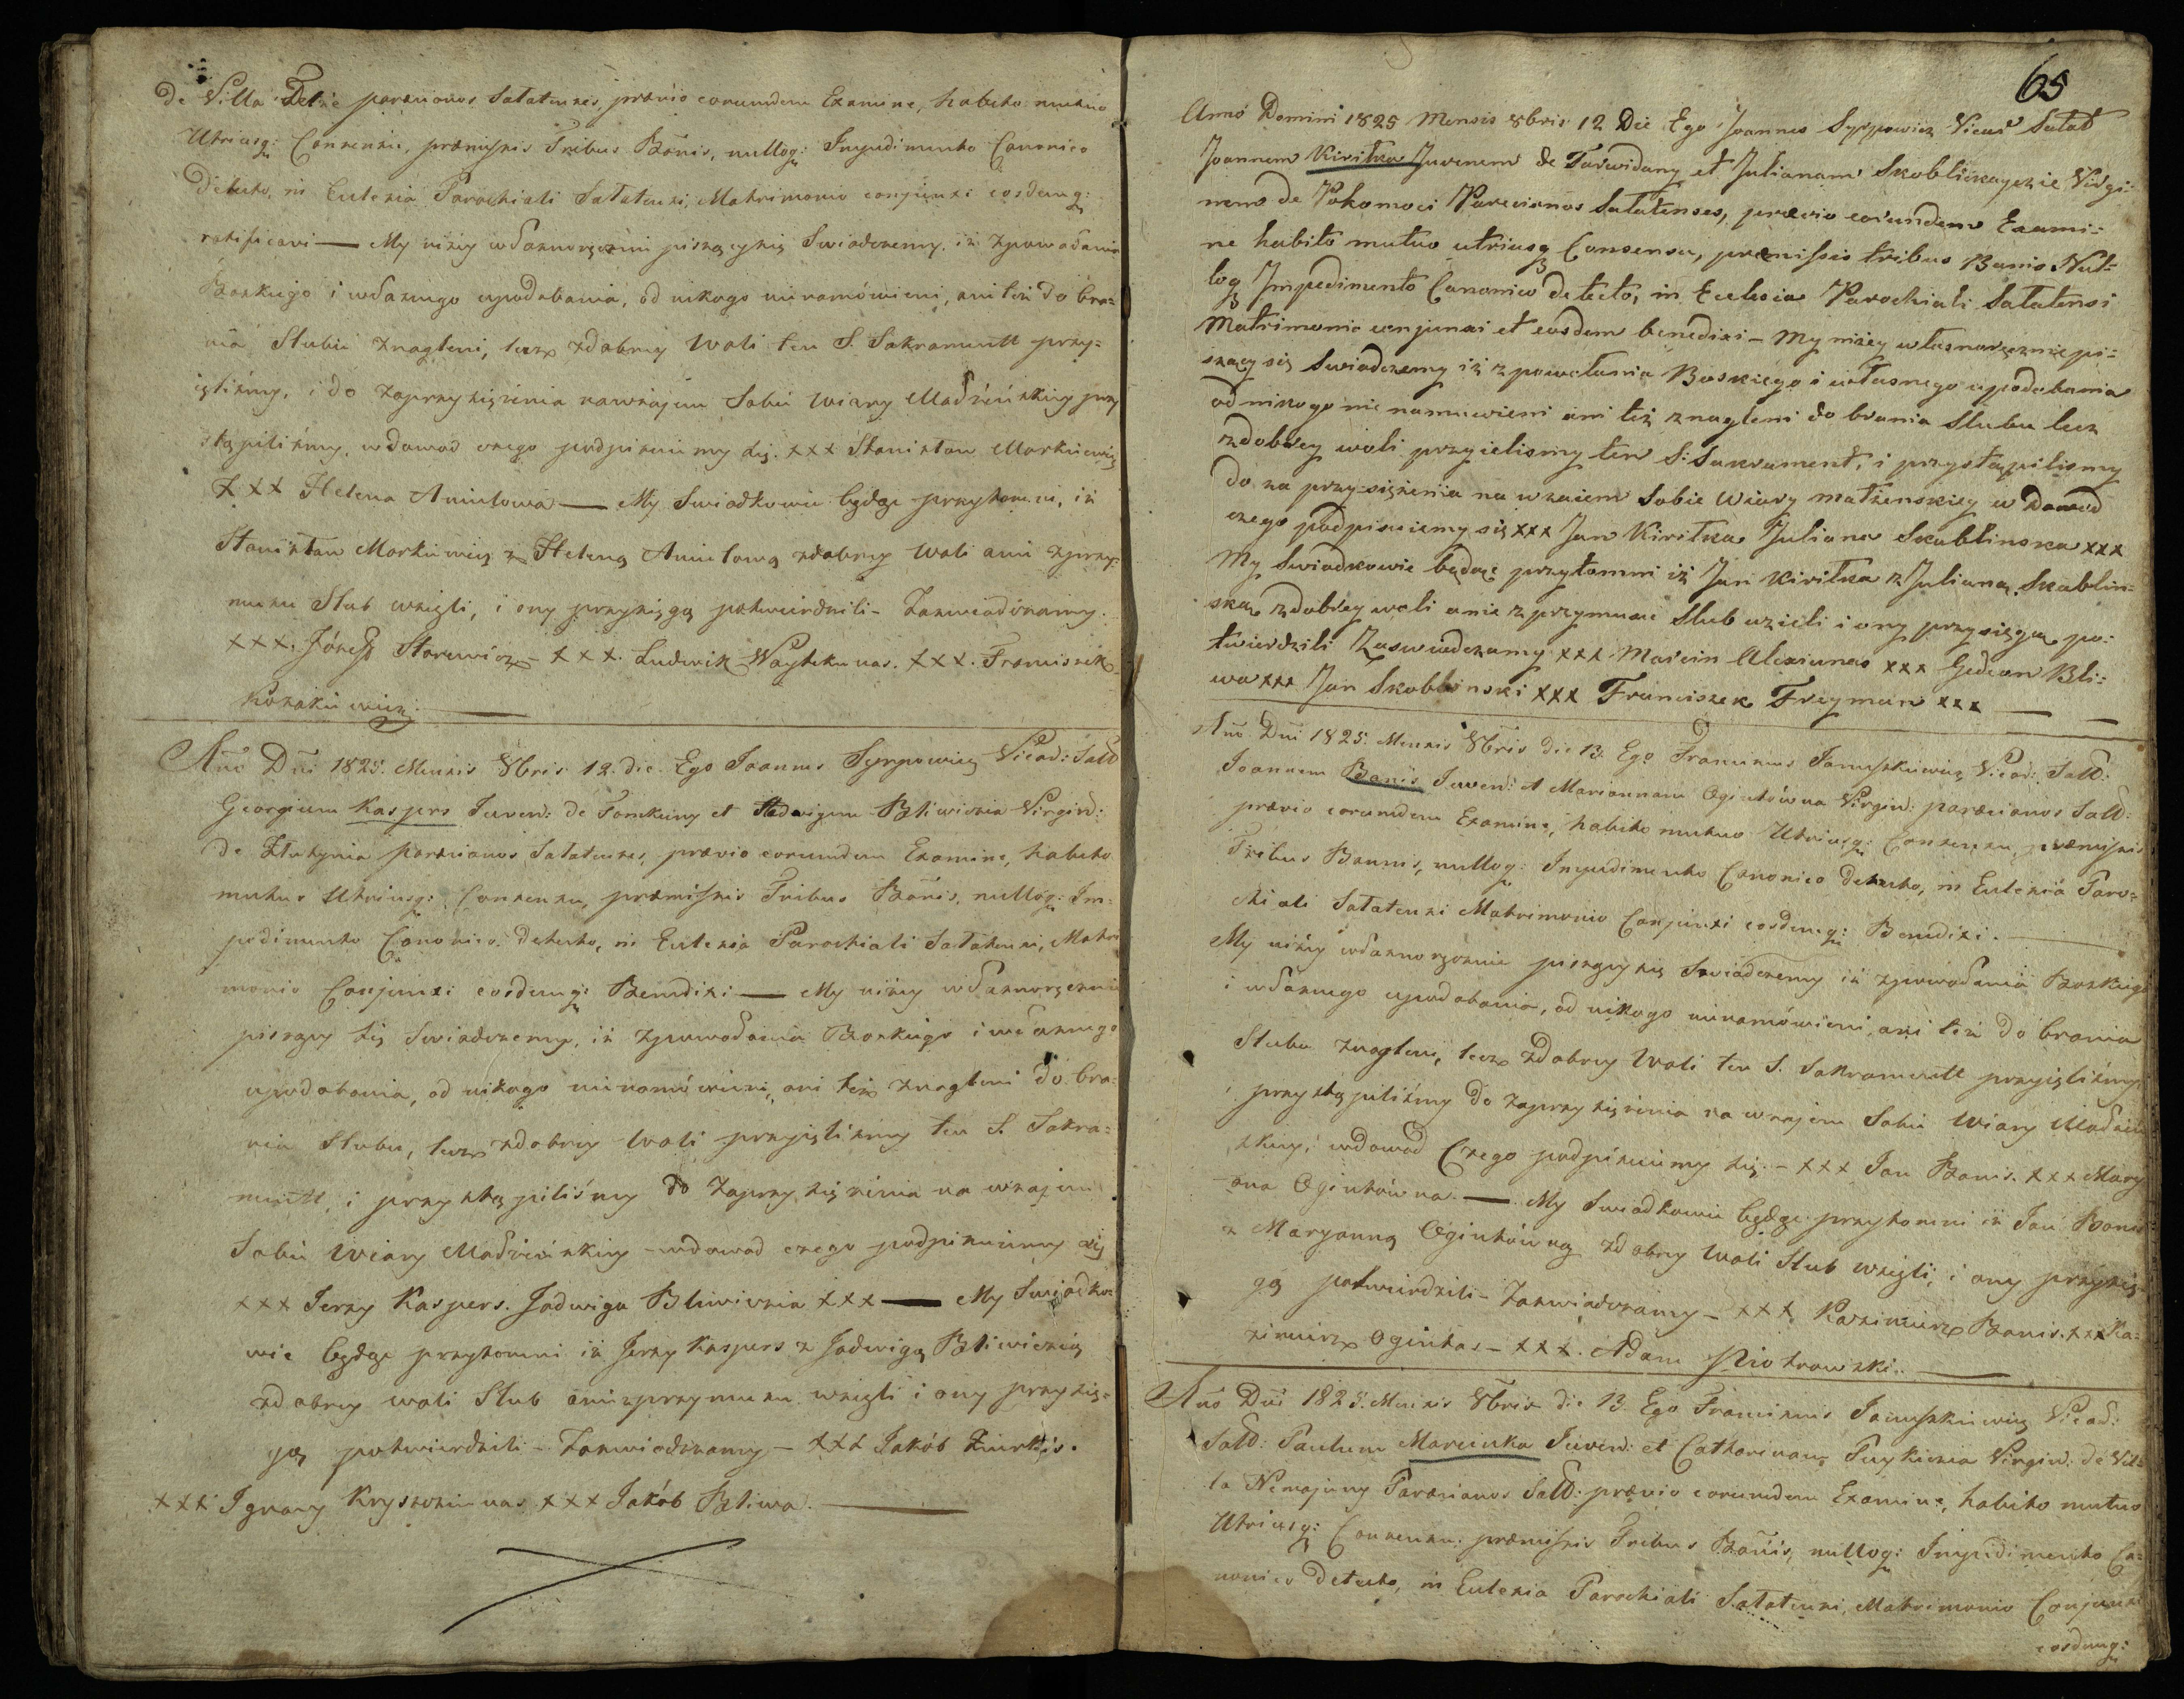 de Villa Delnie parœcianos Sałatenses, prævio eorumdem Examine, habito mutuo
Utriusq: Consensu, præmissis Tribus Bañis, nulloq: Impedimento Canonico
detecto, in Eccلesia Parochiali Sałatensi, Matrimonio conjunxi eosdemq:
ratificavi — My niżey własnoręcznie piszący się Swiadczemy, iż zpowołania
Boskiego i własnego upodobania, od nikogo nienamówieni, ani też do bra=
nia Slubu znagleni, lecz zdobrey Woli ten S. Sakramentt przy=
ięliśmy, i do zaprzysiężenia nawzajem Sobie Wiary Małżeńskiey przy
stąpiliśmy, wdowod czego podpisuiemy się. +++ Stanisław Markiewicz
+++ Helena Anielowa — My Swiadkowie będąc przytomni, iż
Stanisław Markiewicz z Heleną Anielową zdobrey Woli ani zprzy=
musu Slub wzięli, i ony przysięgą potwierdzili – Zaswiadczamy.
+++. Józeff Starewicz – +++. Ludwik Woytekunas. +++. Franciszek
Kozakiewicz.
Año Dñi 1825. Mensis 8bris 12. die. Ego Joannes Syrpowicz Vicað: Sałð
Georgium Kaspers Juven: de Tonkuny et Hedwigem Bliwicznia Virgin:
de parœcianos Sałatenses, prævio eorumdem Examine, habito
mutuo Utriusq: Consensu, præmissis Tribus Bañis, nulloq: Im=
pedimento Canonico detecto, in Ecclesia Parochiali Sałatensi, Matri
monio Conjunxi eosdemq: Benedixi — My niżey własnoręcznie
piszący się Swiadczemy, iż zpowołania Boskiego i własnego
upodobania, od nikogo nienamówieni, ani też znagleni do bra=
nia Slubu, lecz zdobrey Woli przyięliśmy ten S. Sakra=
mentt, i przystąpiliśmy do zaprzysiężenia na wzajem
Sobie Wiary Małżeńskiey – wdowod czego podpisuiemy się
+++ Jerzy Kaspers. Jadwiga Bliwicznia +++ — My Swiadko=
wie będąc przytomni iż Jerzy Kaspers z Jadwigą Bliwicznią
zdobrey woli Slub anizprzymusu wzięli i ony przysię=
gą potwierdzili – Zaswiadczamy – +++ Jakób
+++ Ignacy Kryszczunas +++ Jakób Bliwa.
65
Anno Domini 1825 Mensis 8bris 12 Die Ego Joannes Syrpowicz Vicað Sałat
Joannem Kiriłka Juvenem de Tarwidany et Julianam Skoblickaycie Virgi:
nem de Pokomoci Parecianos Sałatenses, prævio eorundem Exami:
ne habito mutuo utriusq Consensu, premissis tribus Banis Nul=
loq Impedimento Canonico detecto, in Eclesia Parochiali Sałatensi
Matrimonio conjunxi et eosdem benedixi – My niżey własnoręcznie pi=
szący się Swiadczemy iż z powołania Boskiego i własnego upodobania
od nikogo nie namuwieni ani też znagleni do brania Slubu lecz
zdobrey woli przyielismy ten S: Sakrament, i przystąpilismy
do za przysiężenia na wzaiem Sobie Wiary małżenskiey w Dowod
czego podpisuiemy się +++ Jan Kiriłka Juliana Skablinska +++
My Swiadkowie będąc przytomni iż Jan Kiriłka z Julianą Skablin=
ską zdobrey woli anie z przymusu Slub wzieli i ony przysięgą po:
twierdzili Zaswiadczamy +++ Marcin Alexiunas +++ Gedeon Bli=
wa +++ Jan Skoblinski +++ Franciszek Freyman +++
Año Dñi 1825. Mensis 8bris die 13. Ego Franciscus Januszkiewicz Vicað: Sałð:
Joannem Banis Juven: et Mariannam Ogintówna Virgin: parœcianos Sałð:
prævio eorumdem Examine, habito mutuo Utriusq: Consensu, præmissis
Tribus Bannis, nulloq: Impedimento Canonico detecto, in Ecclesia Paro=
chiali Sałatensi Matrimonio Conjunxi eosdemq: Benedixi.
My niżey własnoręcznie piszący się Swiadczemy iż zpowołania Boskiego
i własnego upodobania, od nikogo nienamówieni, ani też do brania
Slubu znagleni, lecz zdobrey Woli ten S. Sakramentt przyięliśmy
i przystąpiliśmy do zaprzysiężenia na wzajem Sobie Wiary Małżeń
skiey, wdowod Czego podpisuiemy się. – +++ Jan Banis. +++ Mary
anna Ogintówna. — My Swiadkowie będąc przytomni iż Jan Banis
z Maryanną Ogintówną zdobrey Woli Slub wzięli, i ony przysię=
gą potwierdzili – Zaswiadczamy – +++ Kazimierz Banis. +++ Ka=
zimierz Ogintas – +++. Adam Piotrowski.
Año Dñi 1825. Mensis 8bris die 13. Ego Franciscus Januszkiewicz Vicað:
Sałð: Paulum Marcinka Juven: et Catharinam Puykicnia Virgin: de Vil=
la Nemajuny Parœcianos Sałð: prævio eorumdem Examine, habito mutuo
Utriusq: Consensu. præmissis Tribus Bañis, nulloq: Impedimento Ca=
nonico Detecto, in Ecclesia Parochiali Sałatensi, Matrimonio Conjunxi
eosdemq: